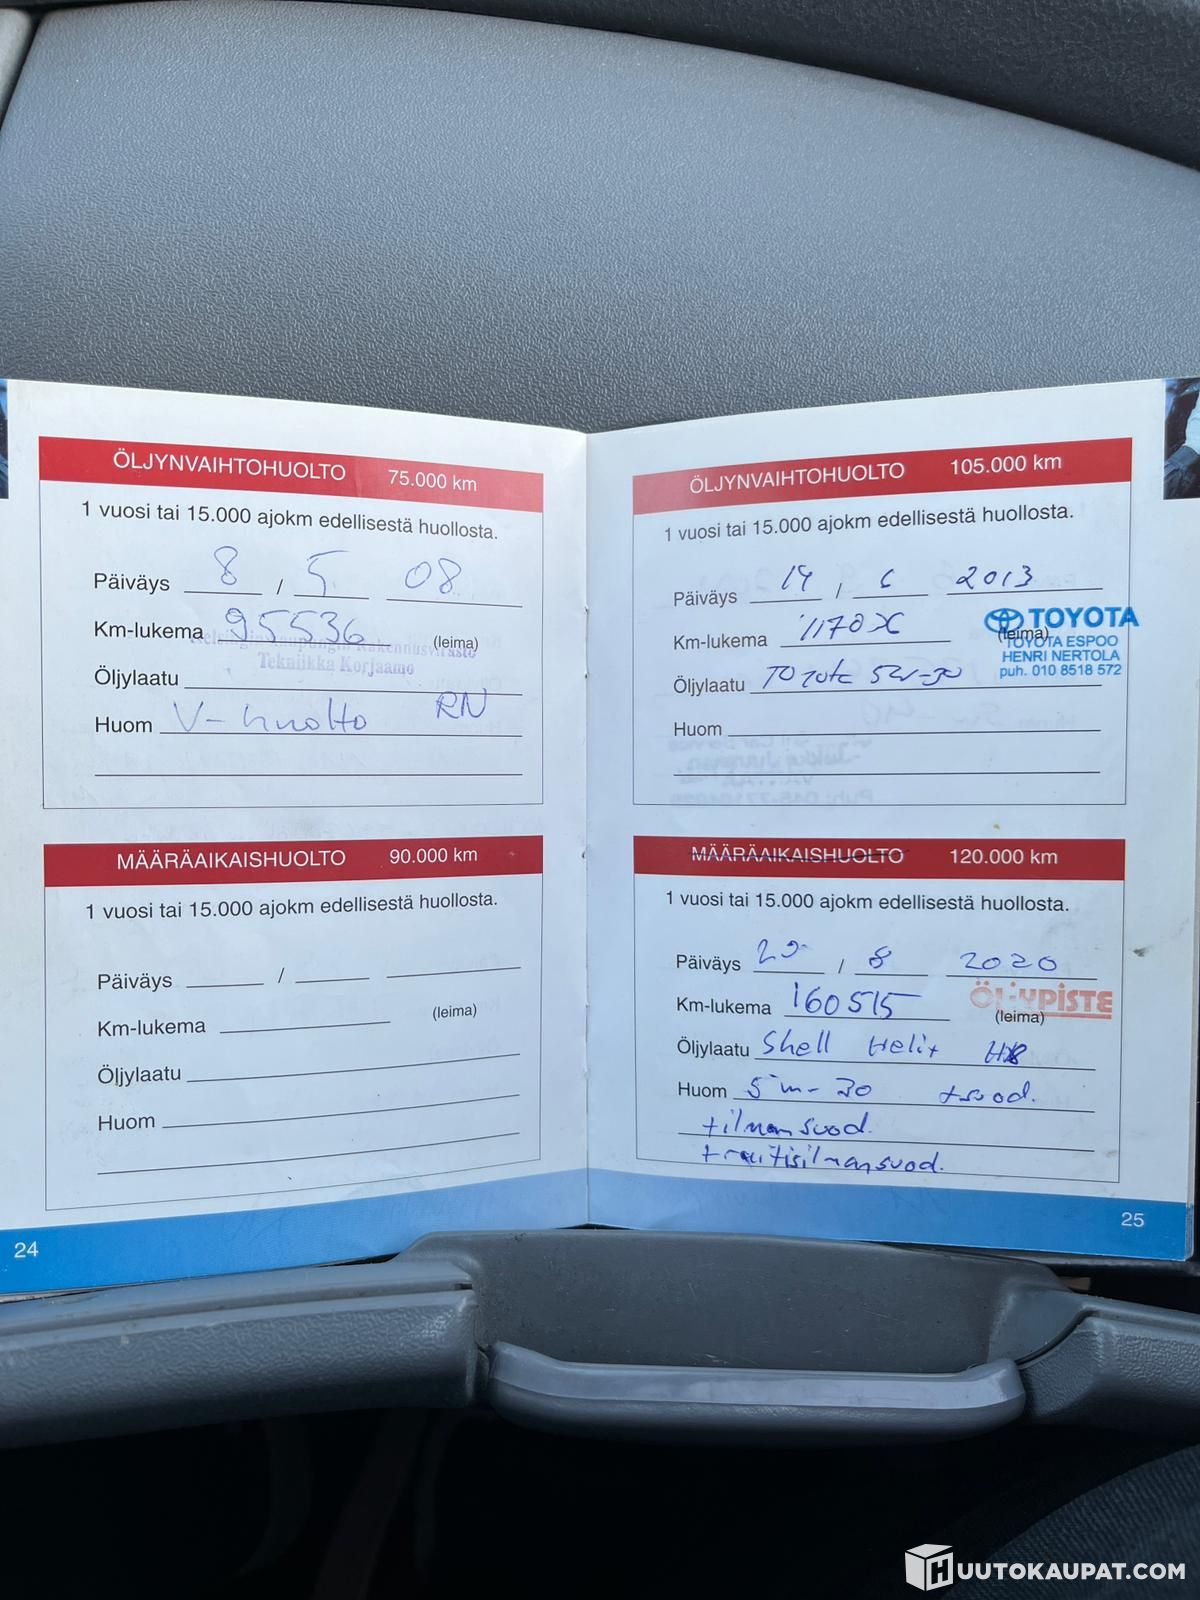 ÖLJYNVAIHTOHUOLTO 75.000 km
1 vuosi tai 15.000 ajokm edellisestä huollosta.
Päiväys 8 / 5. 08
Km-lukema 95536 (leima)
Helsingin kaupungin Rakennusvirasto
Tekniikka Korjaamo
Öljylaatu
Huom V-huolto RN
MÄÄRÄAIKAISHUOLTO 90.000 km
1 vuosi tai 15.000 ajokm edellisestä huollosta.
Päiväys /
Km-lukema (leima)
Öljylaatu
Huom
24
ÖLJYNVAIHTOHUOLTO 105.000 km
1 vuosi tai 15.000 ajokm edellisestä huollosta.
Päiväys 14 / 6 2013
TOYOTA
Km-lukema (leima)
TOYOTA ESPOO
HENRI NERTOLA
puh. 010 8518 572
Öljylaatu Toyota 5w-30
Huom
MÄÄRÄAIKAISHUOLTO 120.000 km
1 vuosi tai 15.000 ajokm edellisestä huollosta.
Päiväys / 8 2020
Km-lukema 160515 (leima)
ÖLJYPISTE
Öljylaatu Shell Helix HX8
Huom 5w-30 +suod.
+ilmansuod.
+raitisilmansuod.
25
HUUTOKAUPAT.COM